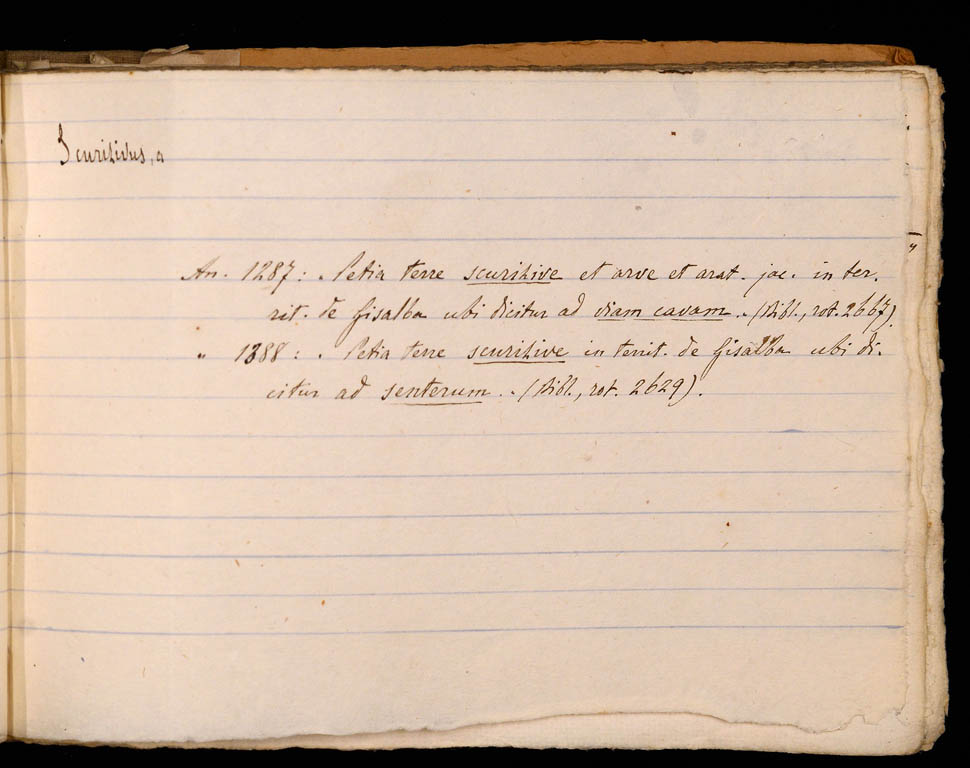 Scurisivus, a
An. 1287: „ Petia terre scurisive et arve et arat. jac. in ter.
rit. de Gisalba ubi dicitur ad viam cavam „ (Bibl., rot. 2667).
„ 1388: „ Petia terre scurisive in territ. de Gisalba ubi di.
citur ad senterum „ (Bibl., rot. 2629).